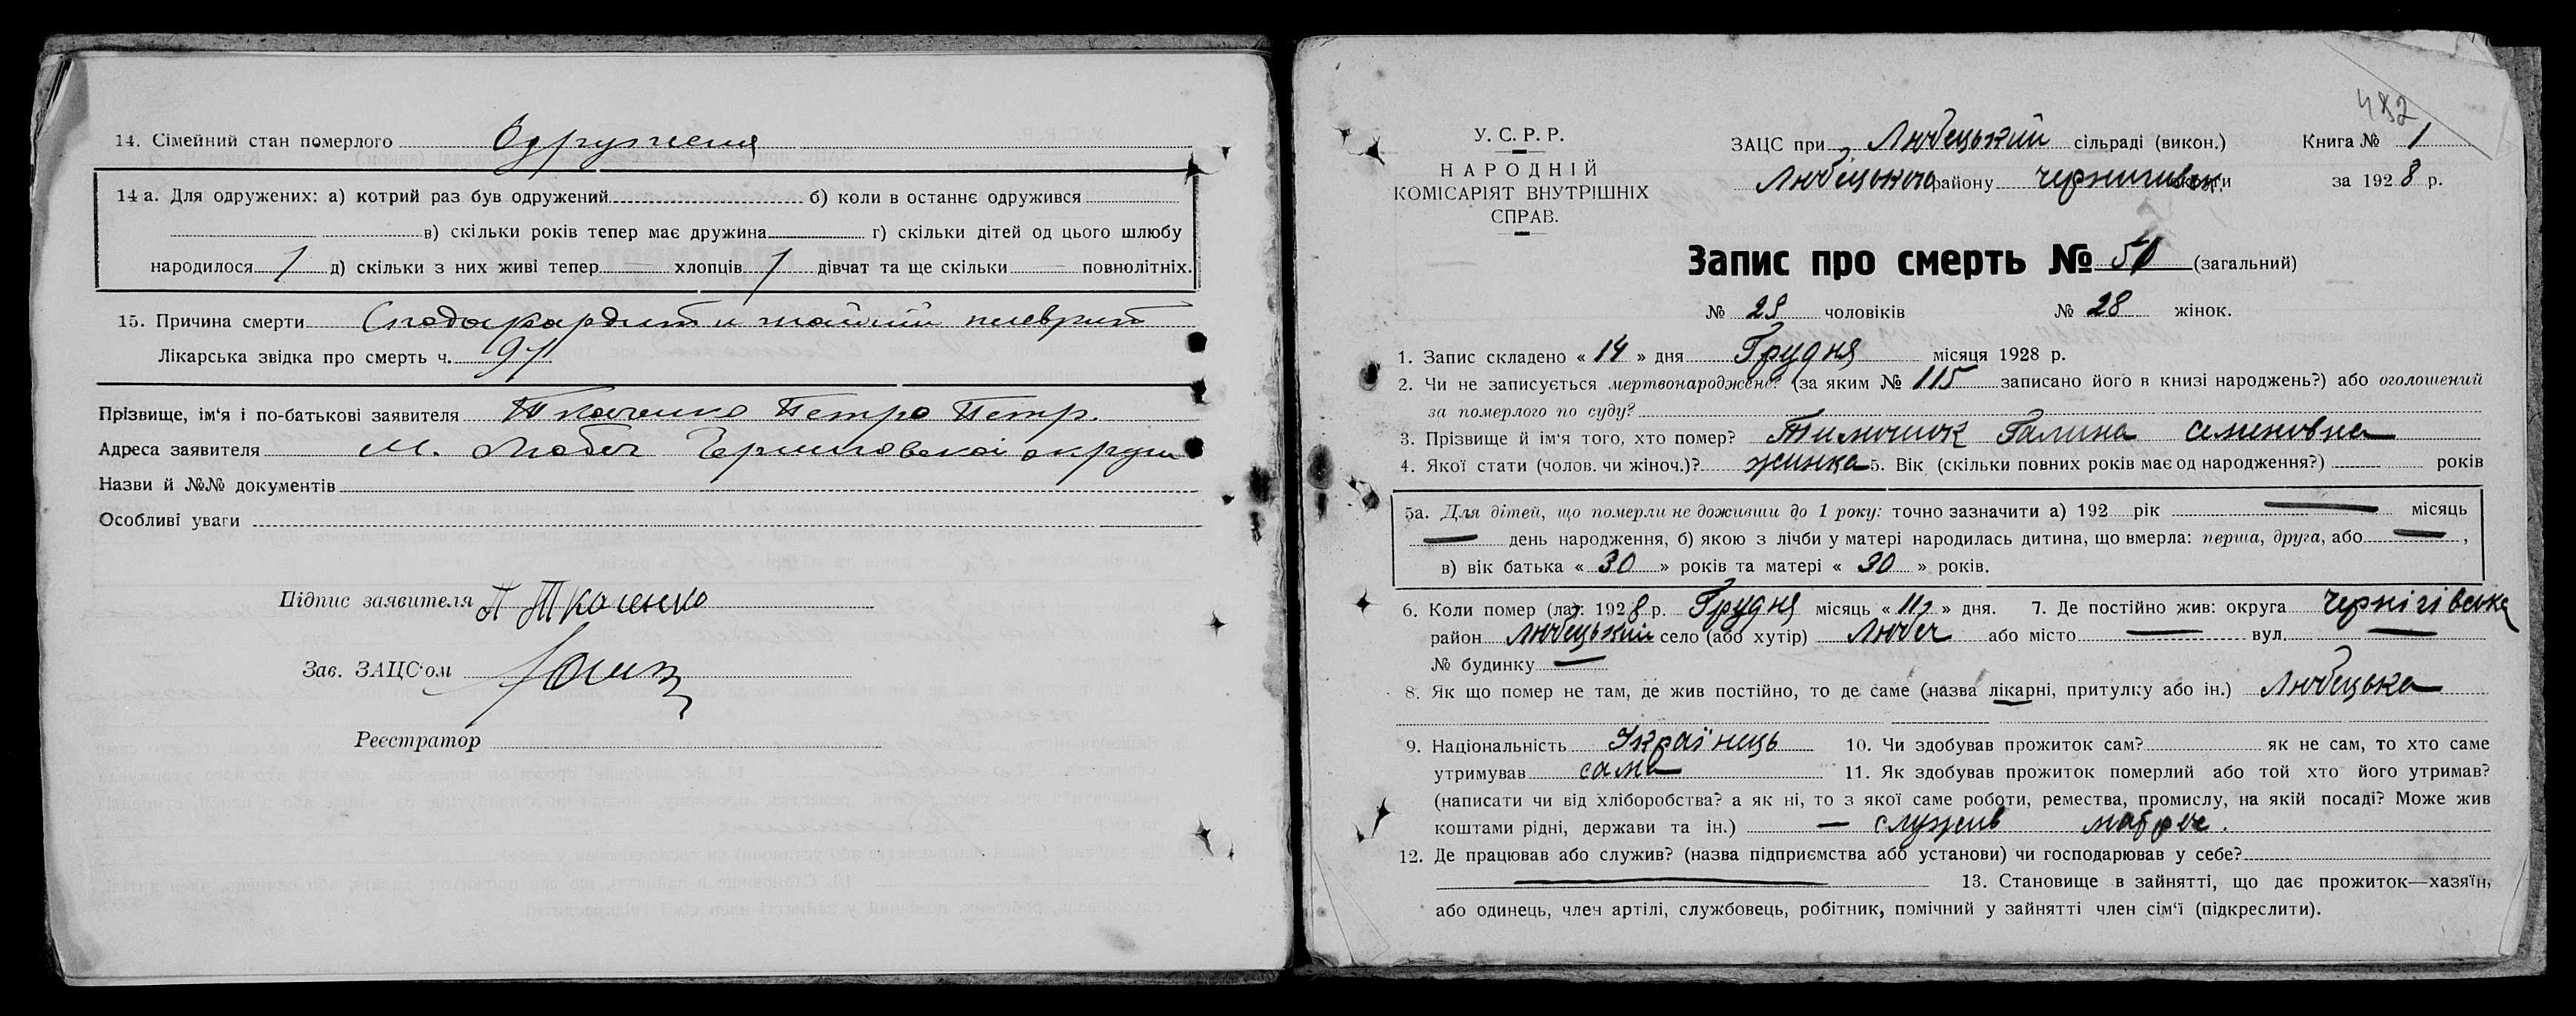 14. Сімейний стан померлого Одружения
14 а. Для одружених: а) котрий раз був одружений б) коли в останнє одружився
в) скільки років тепер має дружина г) скільки дітей од цього шлюбу
народилося 1 д) скільки з них живі тепер — хлопців 1 дівчат та ще скільки — повнолітніх.
15. Причина смерти плеврит
Лікарська звідка про смерть ч. 97
Прізвище, ім'я і по-батькові заявителя Ткаченко Петро Петр.
Адреса заявителя М. Любеч Черниговской округи
Назви й №№ документів
Особливі уваги
Підпис заявителя П Ткаченко
Зав. ЗАЦС'ом
Реєстратор
482
У. С. Р. Р.
НАРОДНІЙ
КОМІСАРІЯТ ВНУТРІШНІХ
СПРАВ.
ЗАЦС при Любецький сільраді (викон.) Книга № 1
Любецького району Чернигівськ. округи за 1928 р.
Запис про смерть № (загальний)
№ 29 чоловіків № 28 жінок.
1. Запис складено « 14 » дня Грудня місяця 1928 р.
2. Чи не записується мертвонароджене? (за яким № 115 записано його в книзі народжень?) або оголошений
за померлого по суду?
3. Прізвище й ім'я того, хто помер? Тимошок Галина Семеновна
4. Якої стати (чолов. чи жіноч.)? жинка 5. Вік (скільки повних років має од народження?) років
5а. Для дітей, що померли не доживши до 1 року: точно зазначити а) 192 рік — місяць
— день народження, б) якою з лічби у матері народилась дитина, що вмерла: перша, друга, або — ,
в) вік батька « 30 » років та матері « 30 » років.
6. Коли помер (ла): 1928 р. Грудня місяць « 11 » дня. 7. Де постійно жив: округа Чернігівська
район Любецький село (або хутір) Любеч або місто — вул. —
№ будинку —
8. Як що помер не там, де жив постійно, то де саме (назва лікарні, притулку або ін.) Любецька
9. Національність Українець 10. Чи здобував прожиток сам? як не сам, то хто саме
утримував сама 11. Як здобував прожиток померлий або той хто його утримав?
(написати чи від хліборобства? а як ні, то з якої саме роботи, ремества, промислу, на якій посаді? Може жив
коштами рідні, держави та ін.) — служив
12. Де працював або служив? (назва підприємства або установи) чи господарював у себе?
— 13. Становище в зайнятті, що дає прожиток—хазяїн,
або одинець, член артілі, службовець, робітник, помічний у зайнятті член сім'ї (підкреслити).